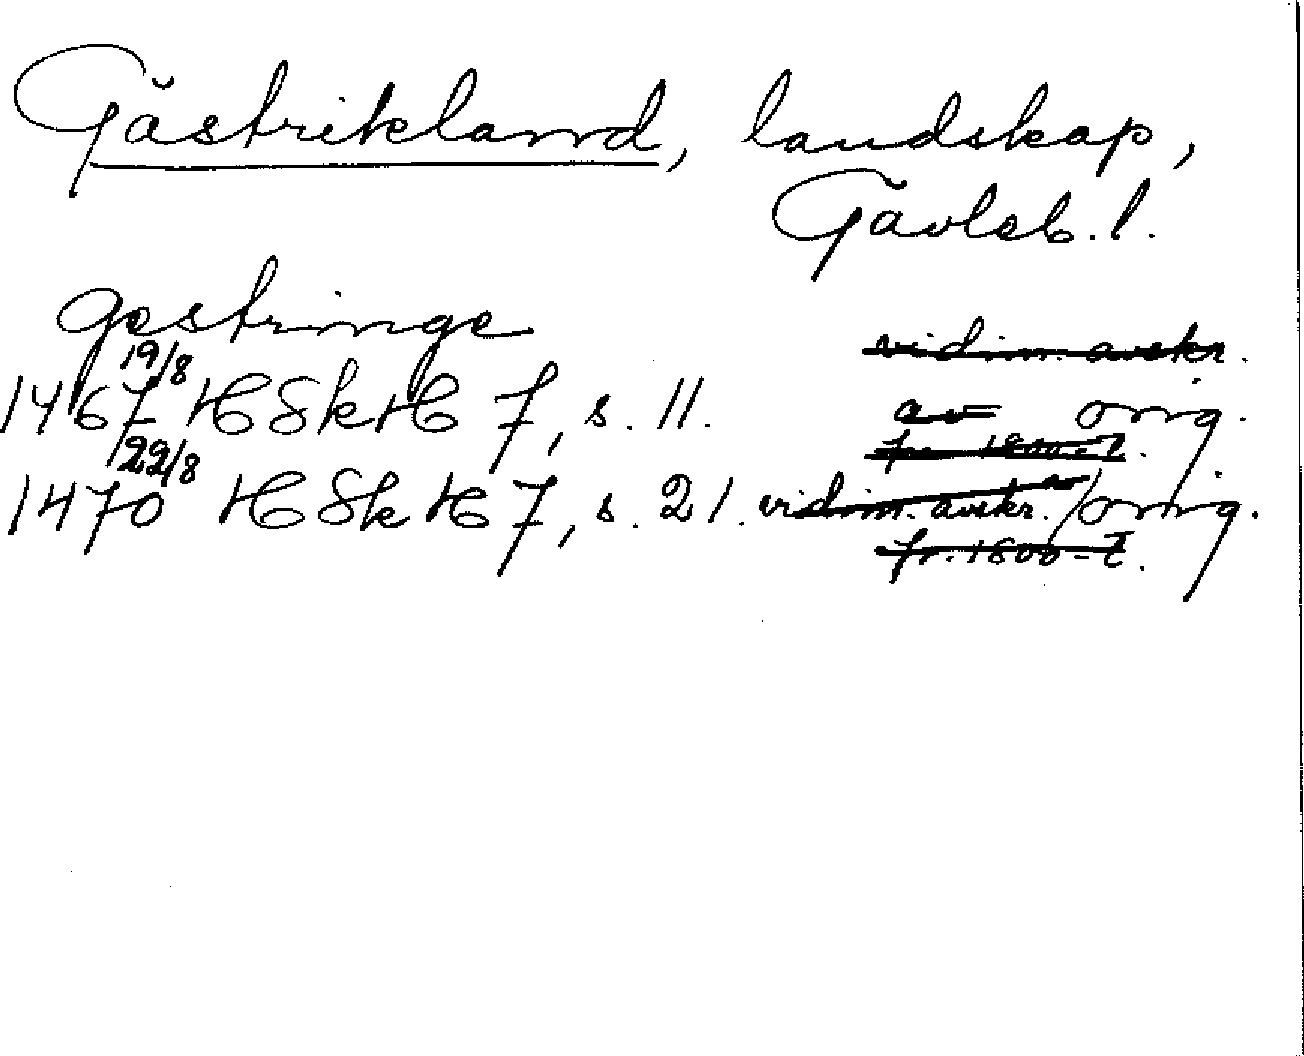 Gästrikland, landskap,
Gävleb. l.
gestringe
vidim. avskr.
1467 19/8 HSkH 7, s. 11. av orig.
fr. 1800-t.
1470 22/8 HSkH 7, s. 21. vidim. avskr. av orig.
fr. 1800-t.